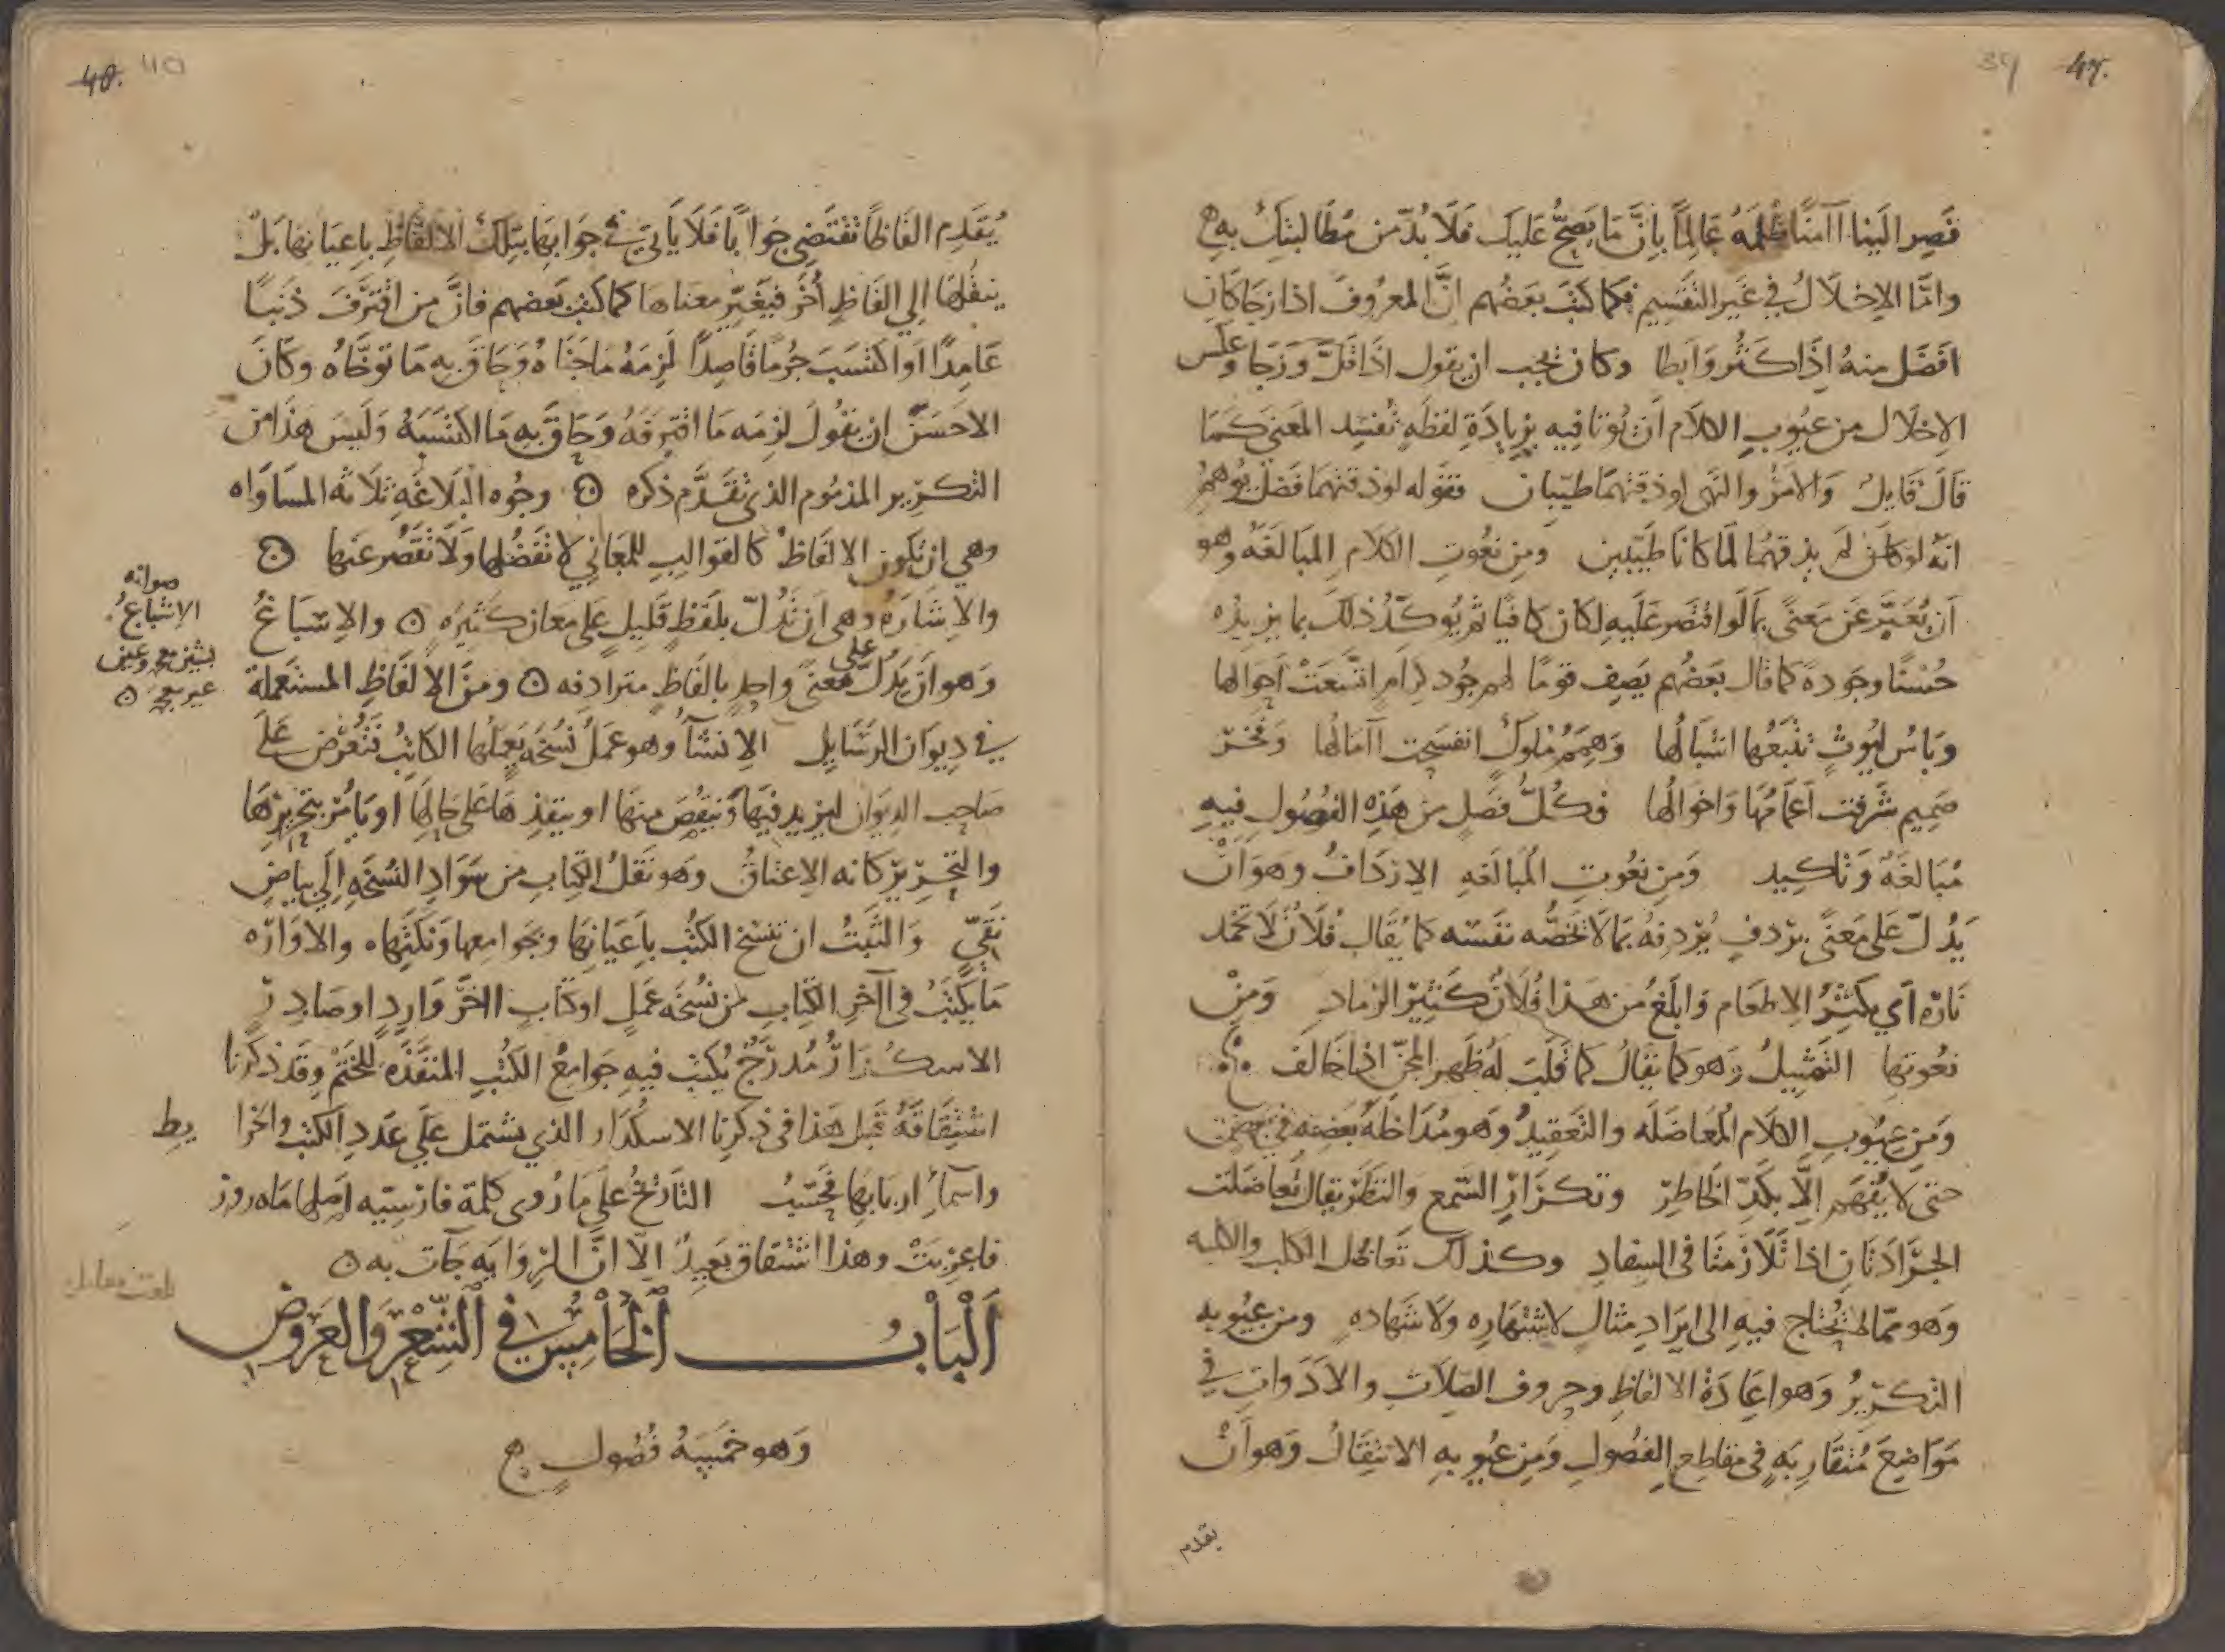 39 47.
فَصِر الَينا اآمنًا ظلمَهُ عَالِمًا بِاَنَّ مَا يَصِحُّ عَلَيكَ فَلَا بُدّ من مُطَالبتِكَ بِهِ ه
وامّا الاِخلَالُ في غَير التقسِيم فكما كتبَ بَعضُهم انَّ المعرُوفَ اذا زجَا كَانَ
افضَل منهُ اِذَا كَثُر وَابطا وكان يجب ان يقول اذَا قلَّ وَزَجَا وعكس
الاِخلَال من عيُوبِ الكلَام اَن يُوتا فيه بِزيَادَةِ لفظَهٍ تُفسِد المَعنى كَمَا
قالَ قَايلٌ وَالامرُ والنهى لوذقتهُمَا طيّبان فقَوله لوذقتهما فَضلٌ يُوهمُ
انّهُ لو كان لم يذقهُما لما كانَا طيّبين ومن نعُوتِ الكلَامِ المبَالغَهُ وهو
اَن يُعَبِّر عَن مَعنىً بمَا لَو اقتصَر عَليهِ لكان كافيًا ثم يُوكّدُ ذلكَ بما يزيدُه
حُسنًا وجَودهً كما قال بَعضُهم يَصِف قومًا لهم جُود كِرامٍ اتّسَعَتْ اَحوالها
وَباسُ ليُوثٍ تتبَعُها اشبَالُها وَهِمَمُ مُلوكٍ انفسَحت اآمَالُها وَفخرُ
صَمِيم شَرُفت اَعمَامُهَا وَاخوَالُها فكُلّ فصَلٍ من هَذِه الفُصُولِ فيهِ
مُبَالغَهٌ وَتاكِيد وَمِن نعُوتِ المُبَالغَهِ الاِردَافُ وهَوَ اَنْ
يَدُلّ عَلى مَعنىً بردفٍ يُردِفهُ بمَا لَا يَخُصُّه نَفسَه كما يُقَال فُلانٌ لَا تخمد
نَارُه اَي يكثِرُ الاِطعَام وَابلَغُ من هَذا فُلَانٌ كَثيرُ الرّمادِ وَمِنْ
نعُوتها التَمثِيلُ وَهوَ كما يقَالُ كَما قُلِبَ لَهُ ظَهر المجَنّ اِذا خَالفَ
وَمِن عيُوبِ الكلَام المُعَاضَلَه والتَعقِيدُ وَهو مُدَاخلهُ بَعضِه في بعضٍ
حَتى لا يُفهَم الَّا بِكَدِّ الخَاطِرِ وتكرَارِ السّمع وَالنظَر يقال تعاضلت
الجَرَادَتَان اذا تَلَازَمتَا في السِفادِ وكذلك تَعَاظل الكلب والكلبه
وَهو ممّا لا يُحتَاج فيهِ الى ايرَادِ مثالٍ لاشتهَارِه ولَا شَهَادهٍ ومن عيُوبه
التكريرُ وَهو اعِادَةُ الالفَاظِ وحرُوف الصِلَات والاَدَواتِ في
مَوَاضِعَ مُتقَاربَهٍ في مقاطع الفصُولِ وَمِن عيُوبهِ الانتِقَالُ وَهوَ اَنْ
يقدم
40. 40
يُقَدِم الفَاظًا تقتَضي جوَابًا فَلَا يَاتيَ في جَوَابِهَا بتلكَ الالفَاظِ باِعيَانهَا بَلْ
ينقُلهَا الي الفَاظٍ اُخَر فيَغيّر معناها كما كتب بَعضهم فانَّ من اقترَفَ ذَنبًا
عَامِدًا اَو اكتسَبَ جُرمًا قَاصِدًا لَزِمَهُ مَا جَنَاهُ وَحَاقَ بهِ مَا تَوَخَّاهُ وَكَانَ
الاَحسَنُ ان يقُولَ لزِمَه مَا اقترفَهُ وَحَاقَ بهِ مَا اكتسَبَهُ وَليسَ هَذَا من
التكرير المذمُوم الذى تقدَّم ذكره ۞ وجُوه البَلَاغَهِ ثلَاثه المسَاوَاه
وهي ان تكون الالفَاظُ كالقوَالِبِ للمَعَاني لا تفضُلها وَلَا تَقصُر عنها ۞
والاِشَارَهُ وهي اَن تدُلّ بلَفظٍ قَلِيلٍ عَلى معَان كثيرَهٍ ۞ والاِسبَاغُ
صوابه
الاِشباعُ
بشين معجمه وعين
غير معجمه ۞
وَهو اَن يَدُلّ على مَعنىً وَاحِدٍ بالفَاظٍ مترَادِفه ۞ ومنَ الالفَاظِ المستَعمَلة
في ديوَان الرسَايل الاِنشَآءُ وهو عمَلُ نُسخَه يَعمَلُها الكاتِبُ فتُعرَض عَلَى
صَاحب الدِيوَان ليزيد فيهَا وَينقُصَ منهَا او ينفِذهَا عَلى حَالِهَا او يَامُرَ بتحريرهَا
والتحرير كانه الاِعتاقُ وهو نَقلُ الكتابِ من سَوَادِ النُسخَهِ اِلَي بياضٍ
نَقيٍّ وَالثَبتُ ان تنسخ الكتُب باَعيَانِهَا وجوامعها ونكتِهاه والاوَارَه
مَا يَكتَبُ في اآخرِ الكتابِ من نُسخَه عَملٍ او كتابٍ اآخرَ وَارِدٍ او صَادِرٍ
الاسكُدَارُ مُدرَّجٌ يُكتبُ فيهِ جَوَامِعُ الكتُبِ المنفذَه للختم وقد ذكرنا
اشتقَاقهُ قبل هَذا في ذكرنا الاسكُدَار الذي يشتمل عَلَي عَدد الكتب والخرا يط
واَسمآءِ اربَابهَا فحَسْبُ التَاريخُ على مَا رُوى كلمة فارسِيّه اَصلهَا ماه روز
فاعربَتْ وهذا اشتقاق بَعِيدٌ اِلّا انَّ الروَايَه جَآت به ۞
بلغت مقابله
اَلْبَابُ اَلْخَامِسُ فِي الشِعْرِ وَالعَرُوض
وَهوَ خمسَهُ فُصُولٍ ه